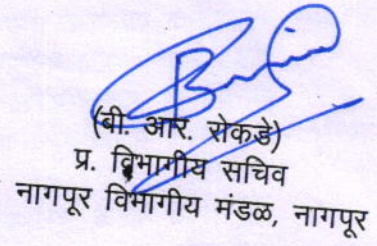 (बी. आर. रोकडे)
प्र. विभागीय सचिव
नागपूर विभागीय मंडळ, नागपूर